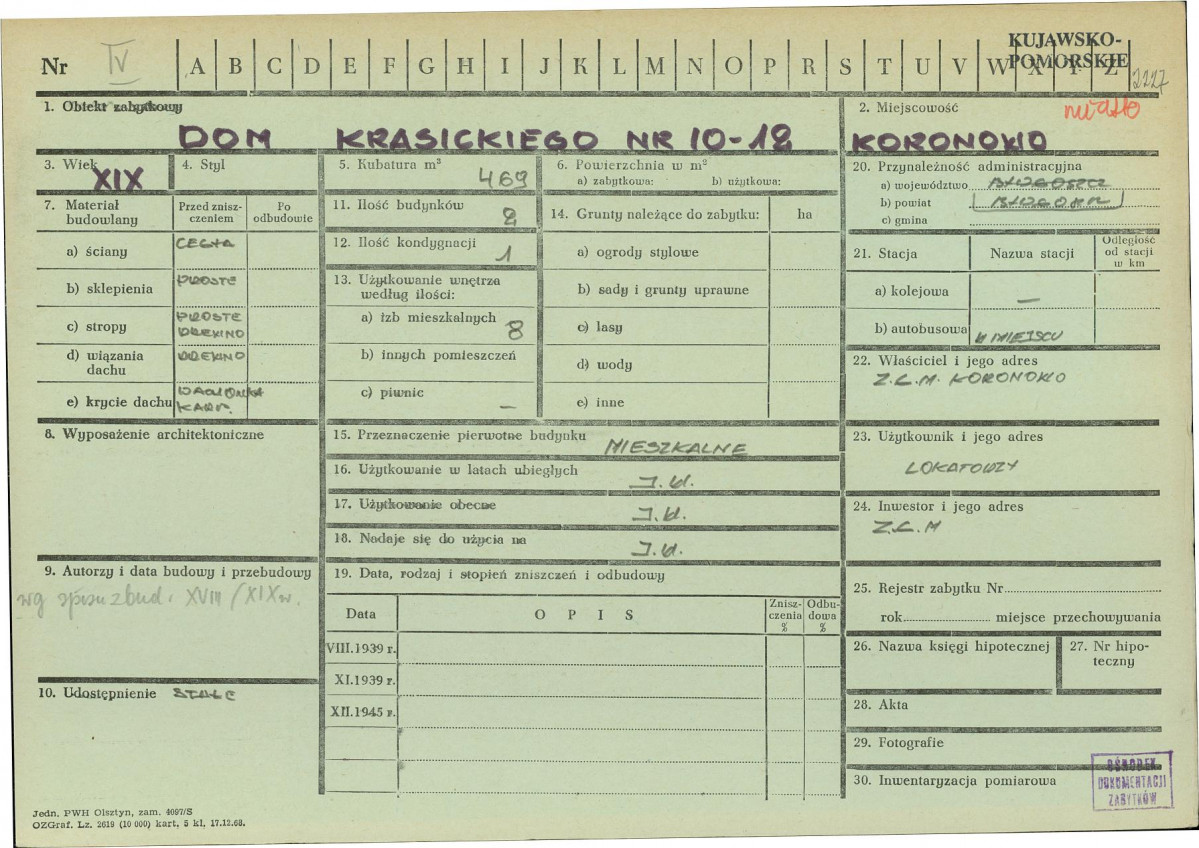 KUJAWSKO-
POMORSKIE
Nr IV A B C D E F G H I J K L M N O P R S T U V W X Y Z
2227
1. Obiekt zabytkowy
DOM KRASICKIEGO NR 10-12
2. Miejscowość
miasto
KORONOWO
3. Wiek
XIX
4. Styl
5. Kubatura m³
469
6. Powierzchnia w m²
a) zabytkowa: b) użytkowa:
20. Przynależność administracyjna
a) województwo BYDGOSZCZ
b) powiat BYDGOSZCZ
c) gmina
7. Materiał budowlany
Przed znisz-
czeniem
Po
odbudowie
a) ściany CEGŁA
b) sklepienia PROSTE
c) stropy PROSTE
DREWNO
d) wiązania
dachu DREWNO
e) krycie dachu DACHÓWKA
KARP.
11. Ilość budynków
2
12. Ilość kondygnacji
1
13. Użytkowanie wnętrza
według ilości:
a) izb mieszkalnych
8
b) innych pomieszczeń
c) piwnic
—
14. Grunty należące do zabytku: ha
a) ogrody stylowe
b) sady i grunty uprawne
c) lasy
d) wody
e) inne
21. Stacja
Nazwa stacji
Odległość
od stacji
w km
a) kolejowa —
b) autobusowa W MIEJSCU
22. Właściciel i jego adres
Z.C.M. KORONOWO
8. Wyposażenie architektoniczne
15. Przeznaczenie pierwotne budynku
MIESZKALNE
16. Użytkowanie w latach ubiegłych
J.W.
17. Użytkowanie obecne
J.W.
18. Nadaje się do użycia na
J.W.
23. Użytkownik i jego adres
LOKATORZY
24. Inwestor i jego adres
Z.C.M
9. Autorzy i data budowy i przebudowy
wg spisu zbud. XVIII/XIX w.
10. Udostępnienie STAŁE
19. Data, rodzaj i stopień zniszczeń i odbudowy
Data
OPIS
Znisz-
czenia
%
Odbu-
dowa
%
VIII.1939 r.
XI.1939 r.
XII.1945 r.
25. Rejestr zabytku Nr
rok miejsce przechowywania
26. Nazwa księgi hipotecznej
27. Nr hipo-
teczny
28. Akta
29. Fotografie
30. Inwentaryzacja pomiarowa
OŚRODEK
DOKUMENTACJI
ZABYTKÓW
Jedn. PWH Olsztyn, zam. 4097/S
OZGraf. Lz. 2619 (10 000) kart, 5 kl, 17.12.68.